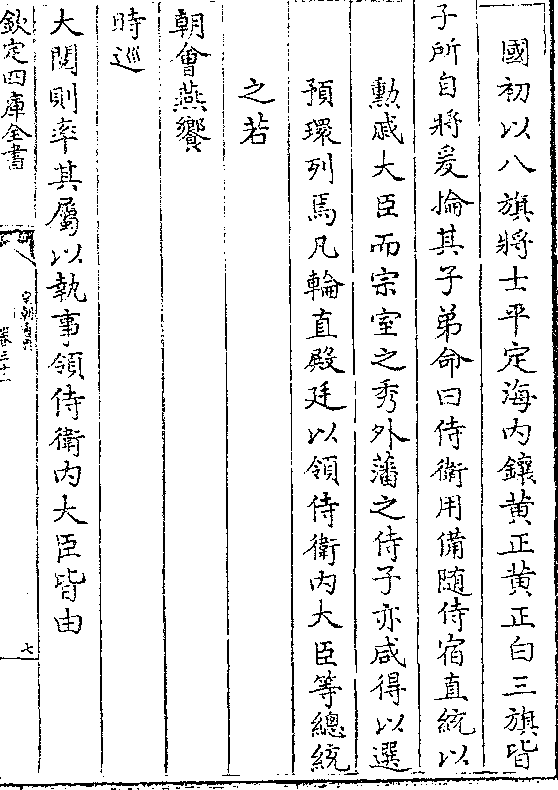 國初以八旗將士平定海内鑲黄正黄正白三旗皆
子所自將爰掄其子弟命曰侍衛用備隨侍宿直統以
勲戚大臣而宗室之秀外藩之侍子亦咸得以選
預環列焉凡輪直殿廷以領侍衛内大臣等總統
之若
朝會燕饗
時巡
大閱則率其屬以執事領侍衛内大臣皆由
欽定四庫全書
卷三十一
七